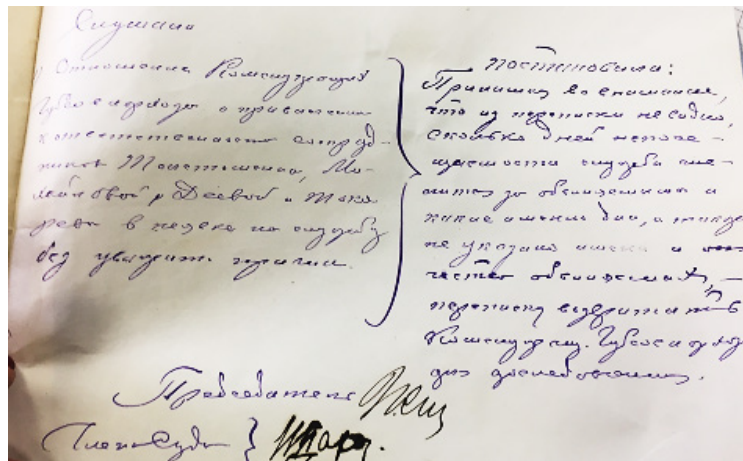 Слушали
Отношение
о привлечении
к ответственности сотруд-
ников Толстошеина, Ми-
хайловой, Деевой и Тока-
рева в неявке на службу
без уважит. причин.
Постановили:
Принимая во внимание,
что из переписки не видно,
сколько дней непосе-
щаемости службы чис-
лится за обвиняемыми и
какие именно дни, а также
не указано имена и от-
чества обвиняемых, —
переписку возвратить
для доследования.
Председатель
Члены Суда